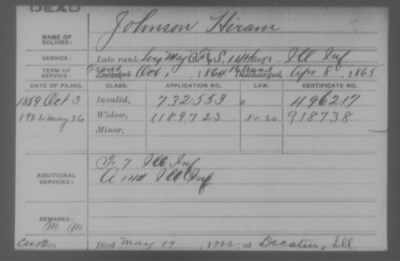 DEAD
Johnson Hiram
NAME OF SOLDIER:
SERVICE: Late rank, Serg Maj F & S, 14 Ill Inf
TERM OF SERVICE: Oct 1, 1864 Discharged Apr 8, 1865
DATE OF FILING. CLASS. APPLICATION NO. LAW. CERTIFICATE NO.
1889 Oct 3 Invalid, 732553 496217
1922 May 26 Widow, 1189723 918738
Minor,
F. 7 Ill Inf
ADDITIONAL SERVICES: A 144 Ill Inf
REMARKS:
Died May 17, 1922, at Decatur, Ill